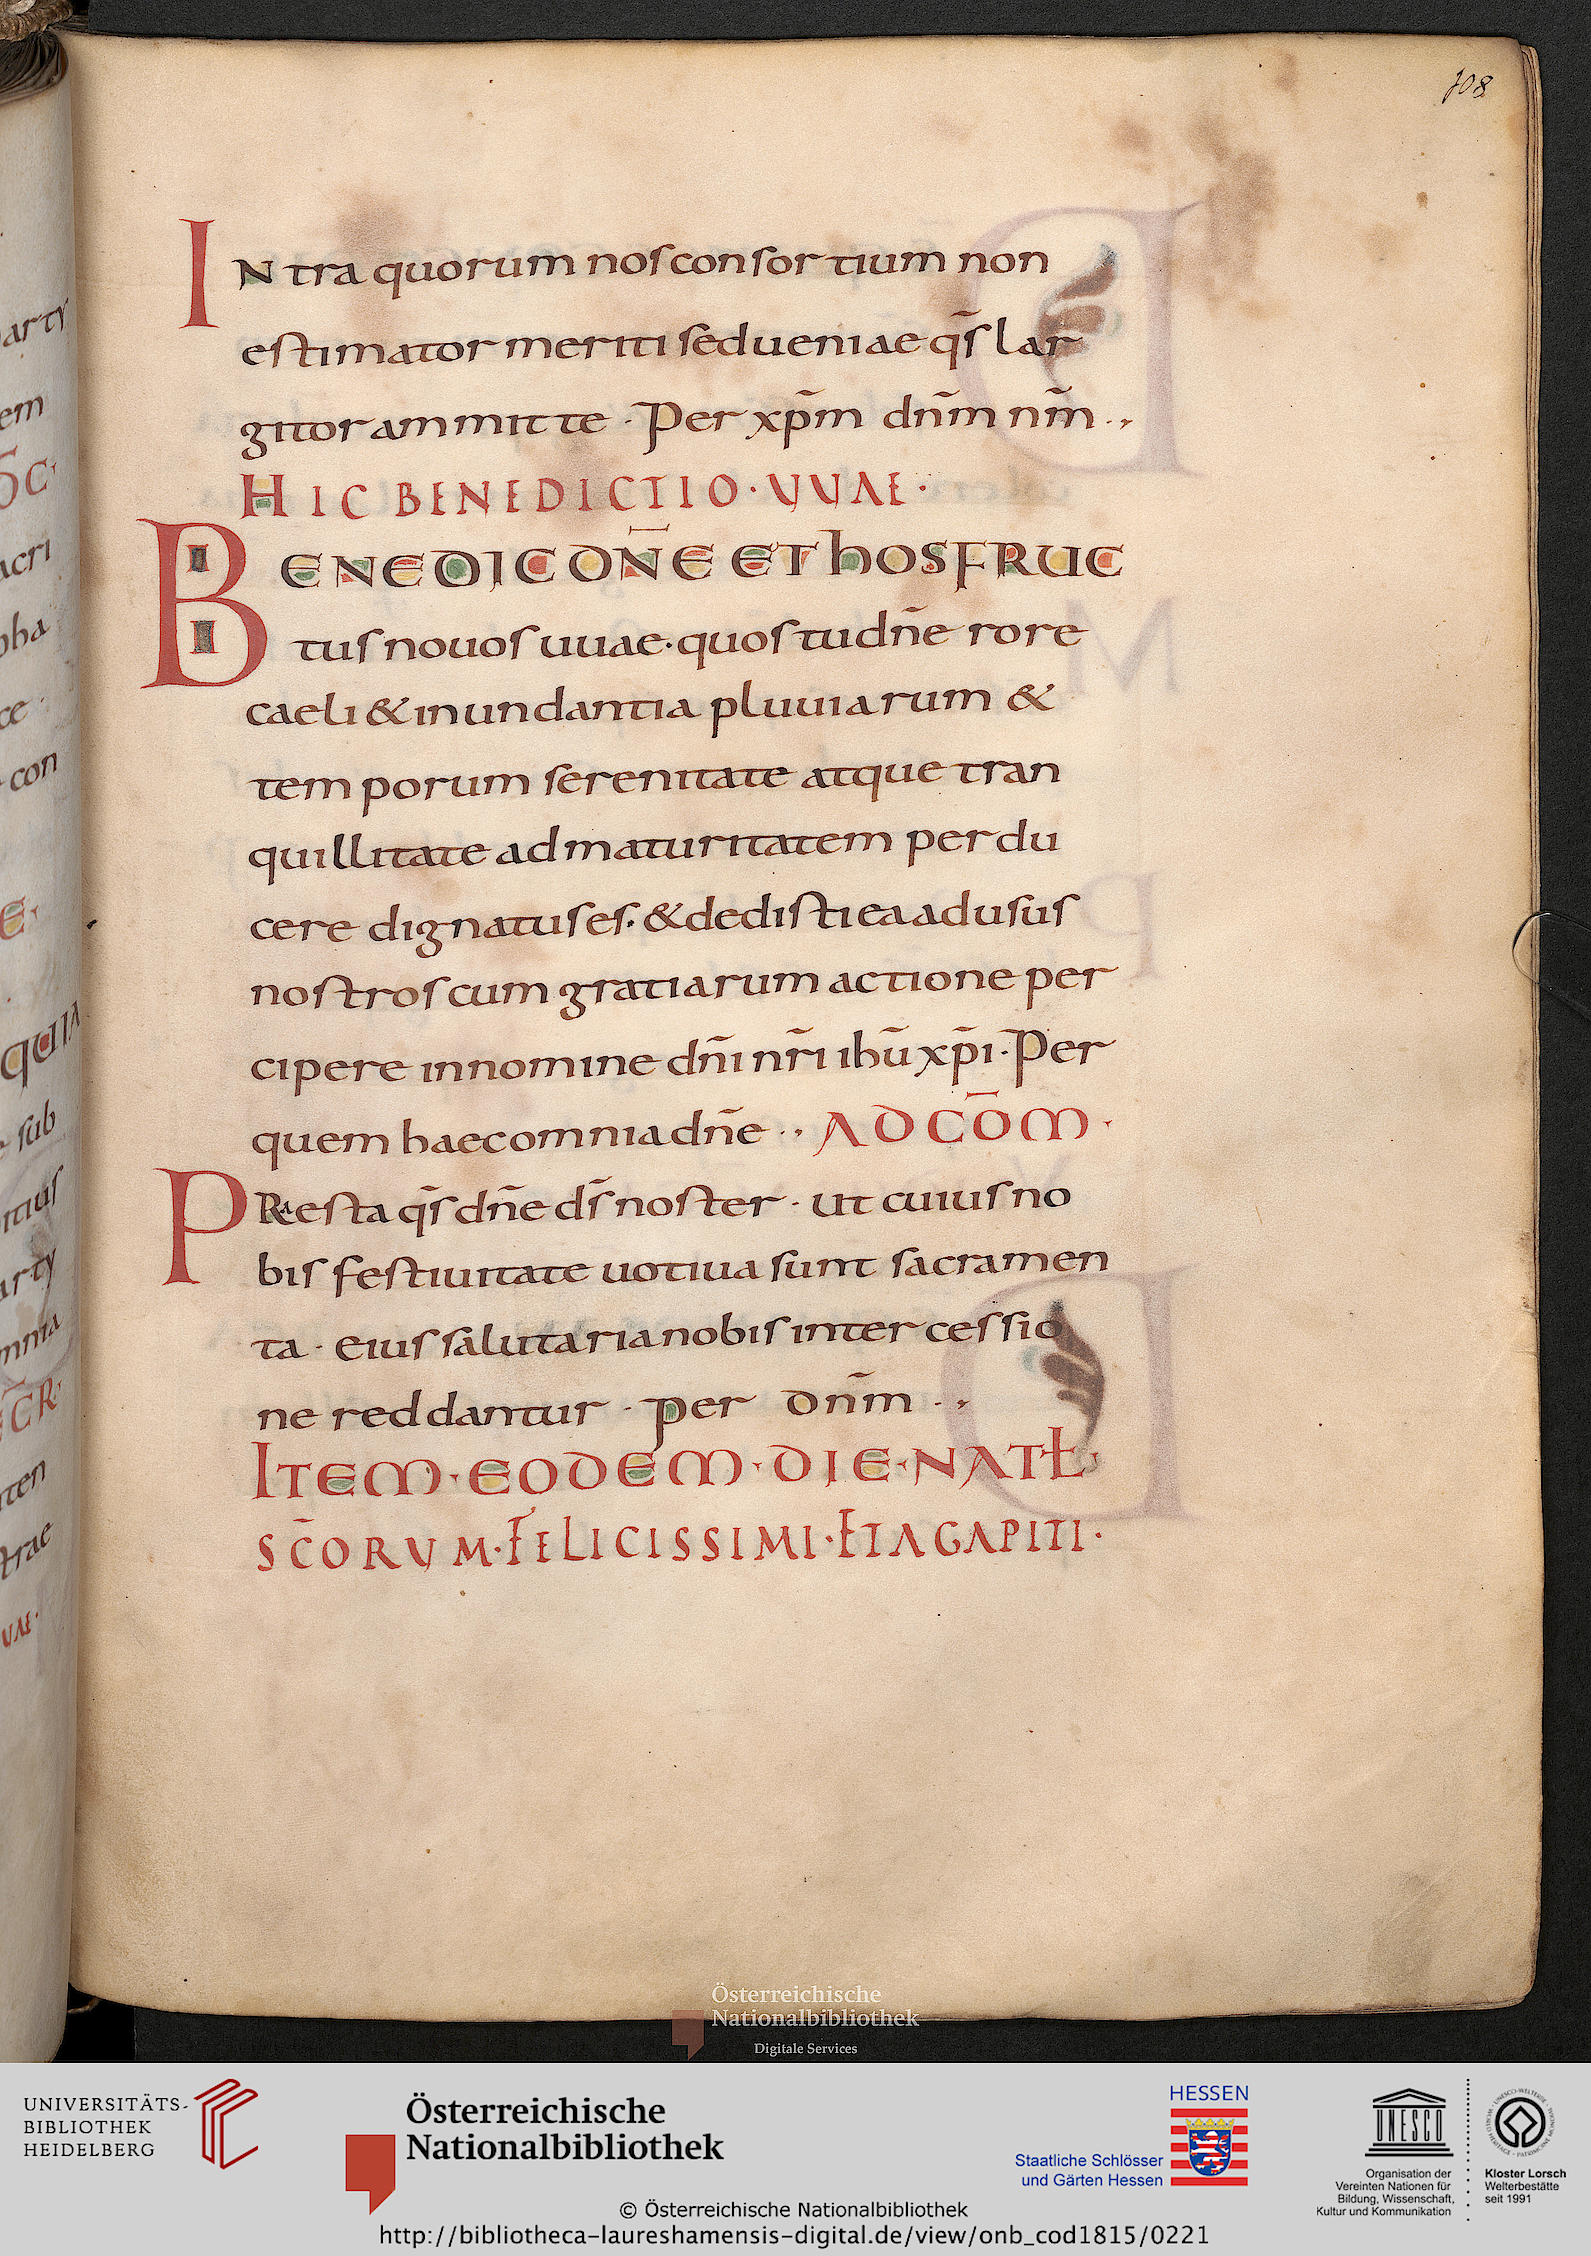 108
IN tra quorum nos consortium non
estimator meriti sed ueniae q̄s lar
gitor ammitte · Per xp̄m dn̄m nr̄m ·,
HIC BENEDICTIO · UUAE ·
BENEDIC DOÑE ET HOS FRUC
tus nouos uuae · quos tu dn̄e rore
caeli & inundantia pluuiarum &
temporum serenitate atque tran
quillitate ad maturitatem perdu
cere dignatus es · & dedisti ea ad usus
nostros cum gratiarum actione per
cipere in nomine dn̄i nr̄i ihū xp̄i · Per
quem haec omnia dn̄e ·, AD CŌM ·
PRaesta q̄s dn̄e ds̄ noster · ut cuius no
bis festiuitate uotiua sunt sacramen
ta · eius salutaria nobis intercessio
ne reddantur · per dn̄m ·,
ITEM · EODEM · DIE · NATL̄
SC̄ORUM · FELICISSIMI · ET AGAPITI ·
Österreichische
Nationalbibliothek
Digitale Services
UNIVERSITÄTS-
BIBLIOTHEK
HEIDELBERG
Österreichische
Nationalbibliothek
HESSEN
Staatliche Schlösser
und Gärten Hessen
UNESCO
Organisation der
Vereinten Nationen für
Bildung, Wissenschaft,
Kultur und Kommunikation
Kloster Lorsch
Welterbestätte
seit 1991
© Österreichische Nationalbibliothek
http://bibliotheca-laureshamensis-digital.de/view/onb_cod1815/0221